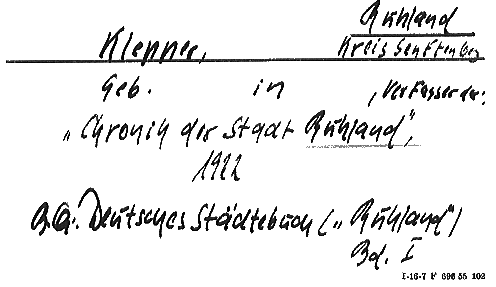 Ruhland
Klepper, Kreis Senftenberg
Geb. in , Verfasser der:
„Chronik der Stadt Ruhland",
1922
Deutsches Städtebuch („Ruhland")
Bd. I
I-16-7 F 696 55 102